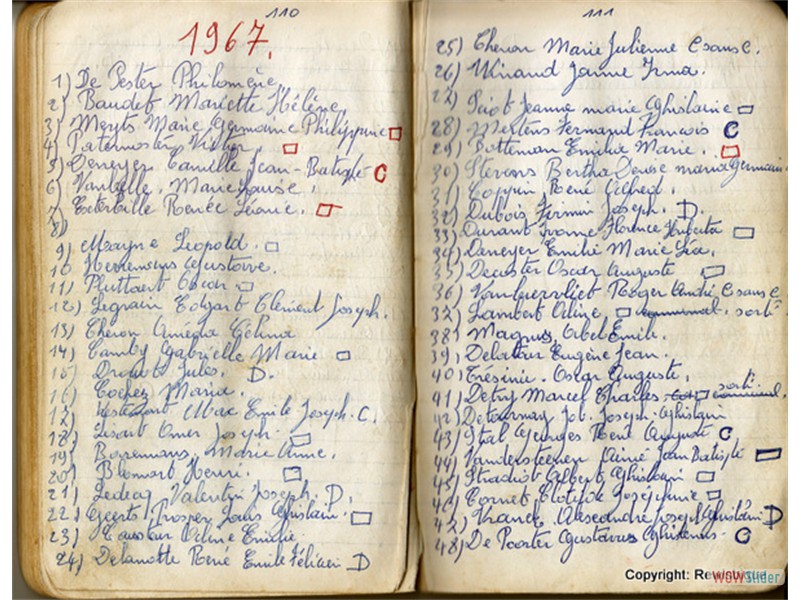 110
1967.
1) De Pester Philomène,
2) Baudet Mariette Hélène,
3) Meyts Marie Germaine Philippine
4) Paternoster Victor.
5) Deneyer Camille Jean-Batiste C
6) Marie Louise.
7) Renée Léonie.
8)
9) Mayne Léopold.
10 Gustave.
11) Pluttaert Oscar
12) Legrain Edgart Clément Joseph.
13) Cheron Célina
14) Camby Gabrielle Marie
15 Jules. D.
16) Cochez Maria.
17) Emile Joseph. C.
18) Lisart Omer Joseph.
19) Marie Anne.
20) Blomart Henri.
21) Valentin Joseph. D.
22) Geerts Prosper Louis Ghislain.
23) Emilie
24) Delanotte René Emile Félicien D
111
25) Cheron Marie Julienne C sans C.
26) Minaud Jeanne Irma.
27)
Jeanne marie Ghislaine
28) Mertens Fernand Francois C
29) Botteman Emilia Marie.
30) Stevens Bertha Denise maria Germaine
31) René Alfred.
32) Dubois Firmin Joseph. D.
33) Durant Ivonne Florence Huberta
34) Daneyer Emilie Marie Léa.
35) Decoster Oscar Auguste
36) Roger André C sans C
37) Lambert Odine sorti
38) Magnus Abel Emile.
39) Delateur Eugène Jean.
40) Trésinie Oscar Auguste.
41) Detry Marcel Charles sorti
42) Detournay Joseph Ghislain
43) Stal Georges René Auguste C
44) Vandersteenen Aimé Jean Batiste
45) Stradiot Albert Ghislain
46) Cornet Clotilde Joséphine
47) Franck Alexandre Joseph Ghislain D
48) De Poorter Gustavus Ghislenus. C
Copyright: Rewisbique
WOWSlider